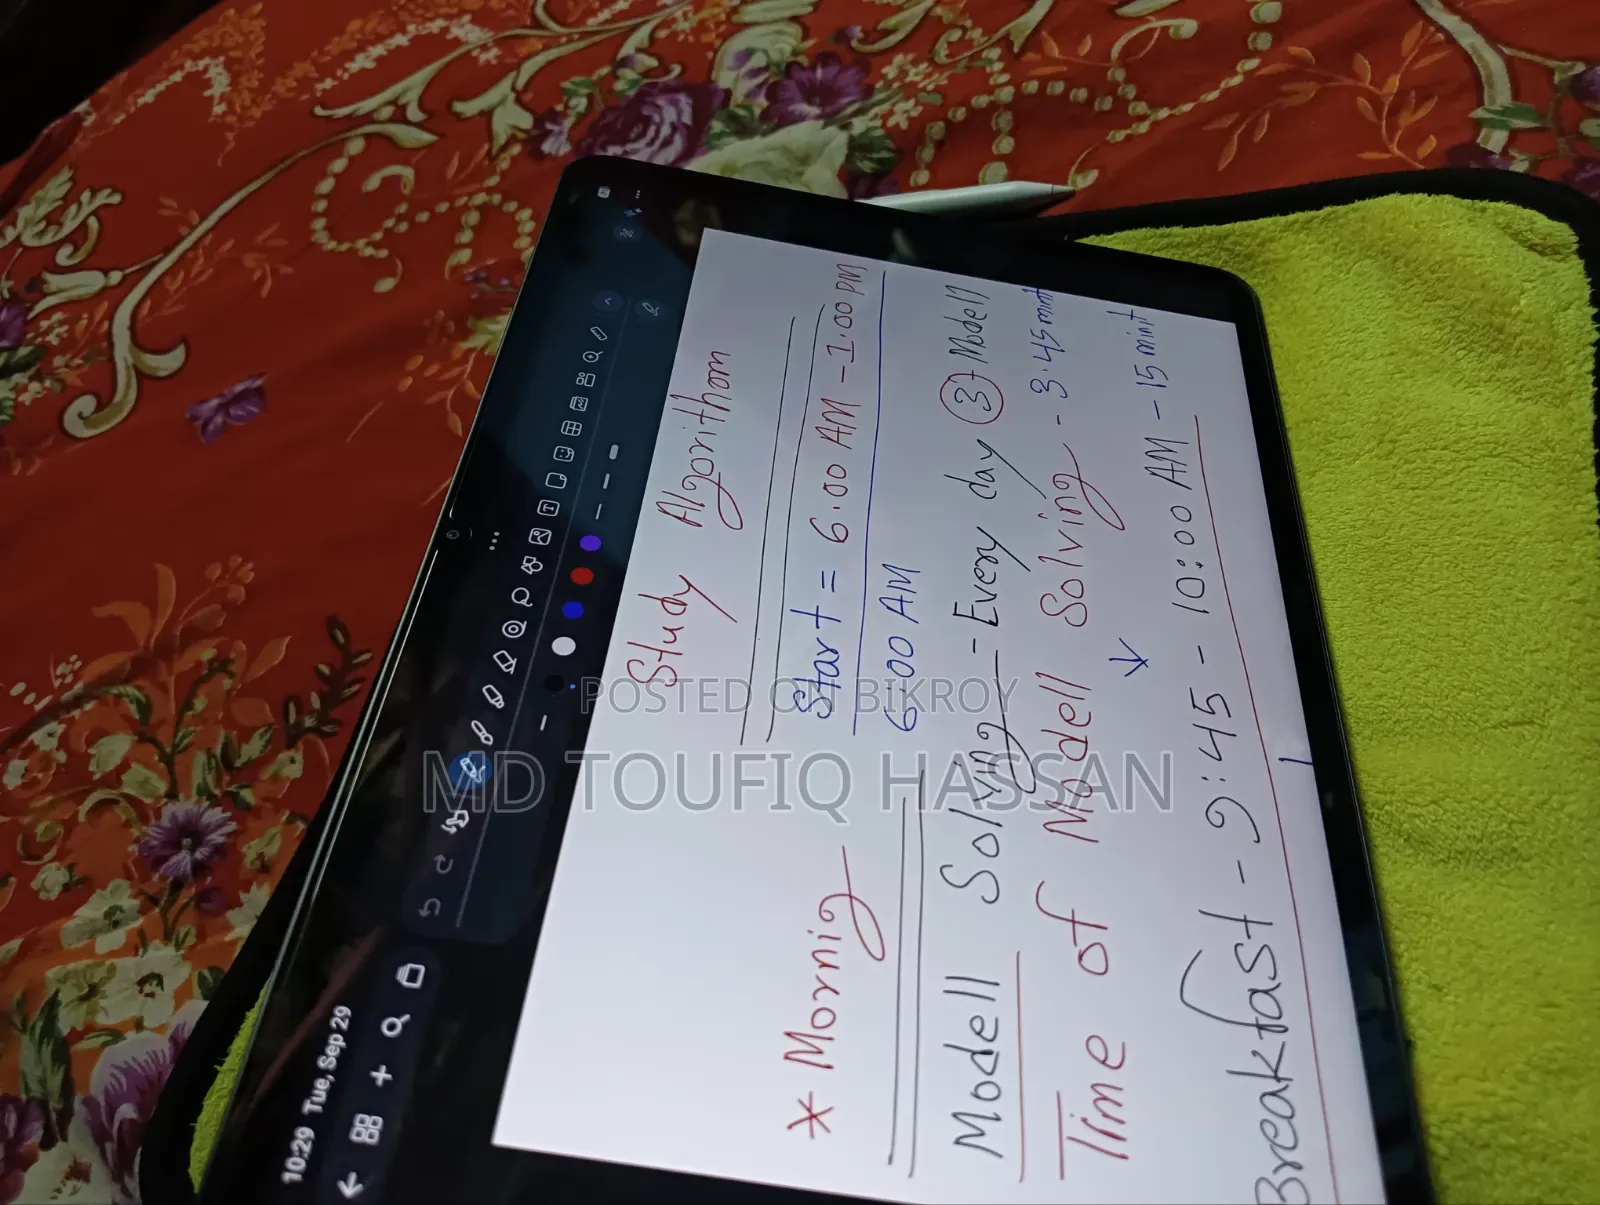 10:29 Tue, Sep 29
Study Algorithom
Start = 6.00 AM - 1.00 PM
* Mornig
6:00 AM
Modell Solving = Every day 3 Modell
Time of Modell Solving - 3.45 mint
Breakfast - 9:45 - 10:00 AM - 15 minit
POSTED ON BIKROY
MD TOUFIQ HASSAN